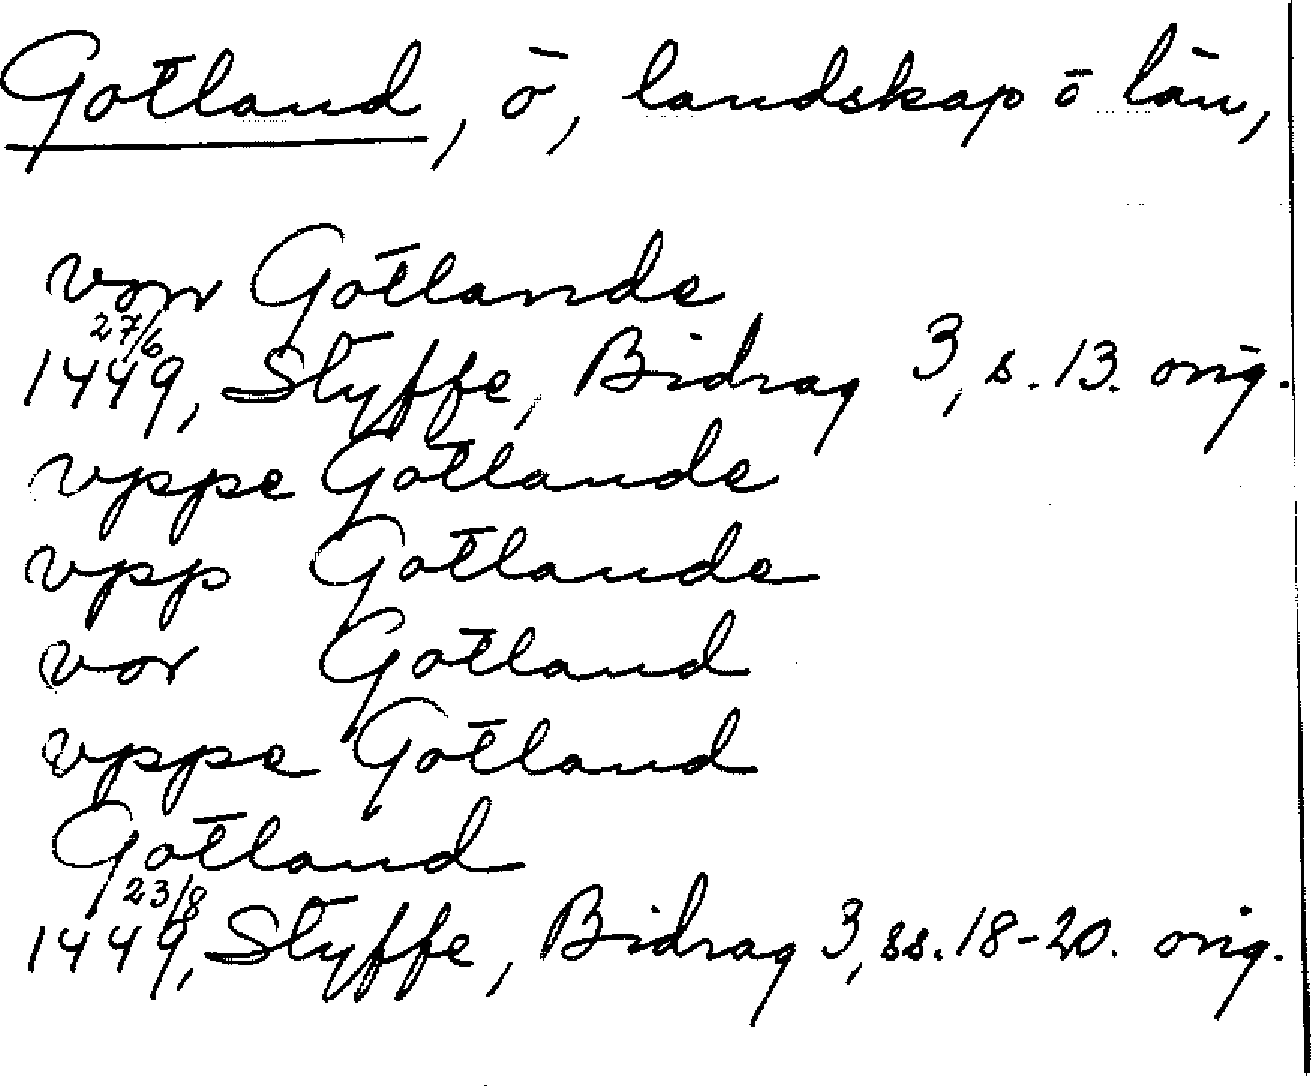 Gotland, ö, landskap o län,
von Gotlande
27/6
1449, Styffe, Bidrag 3, s. 13. orig.
vppe Gotlande
vpp Gotlande
vor Gotland
vppe Gotland
Gotland
23/8
1449, Styffe, Bidrag 3, ss. 18-20. orig.